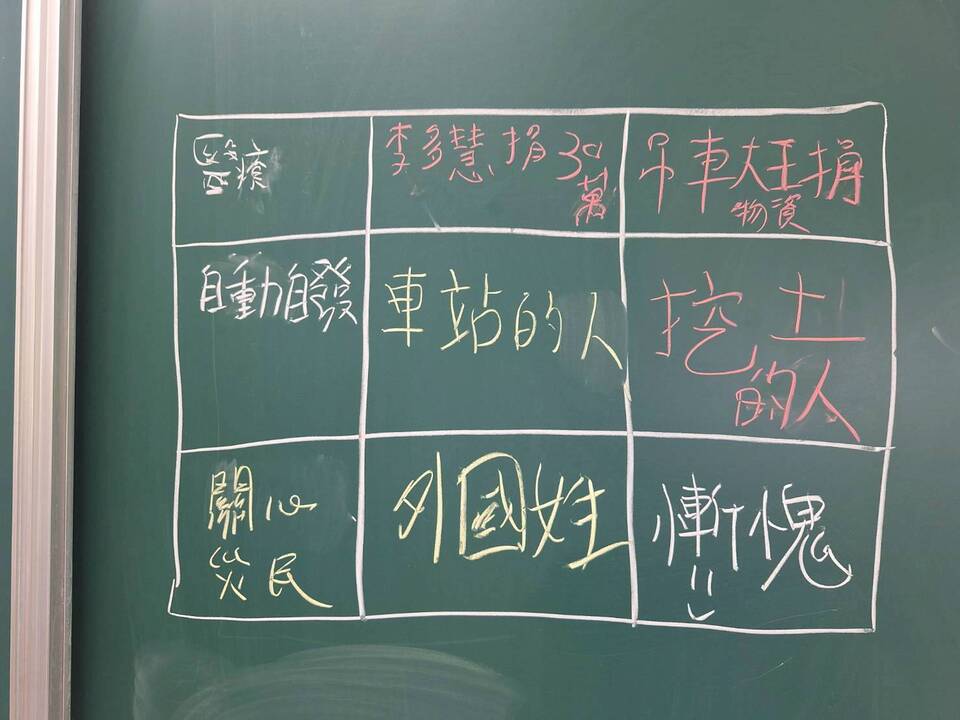 醫療
李多慧捐30
萬
吊車大王捐
物資
自動自發
車站的人
挖土
的人
關心
災民
外國姓
慚愧